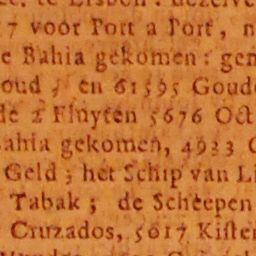 te Lisbon : dezelve
7 voor Port a Port, n
e Bahia gekomen : gen
oud ; en 61595 Goud
de 2 Fluyten 5676 Oct
Bahia gekomen, 4923 G
Geld ; het Schip van Li
Tabak ; de Scheepen
Cruzados, 5617 Kisten